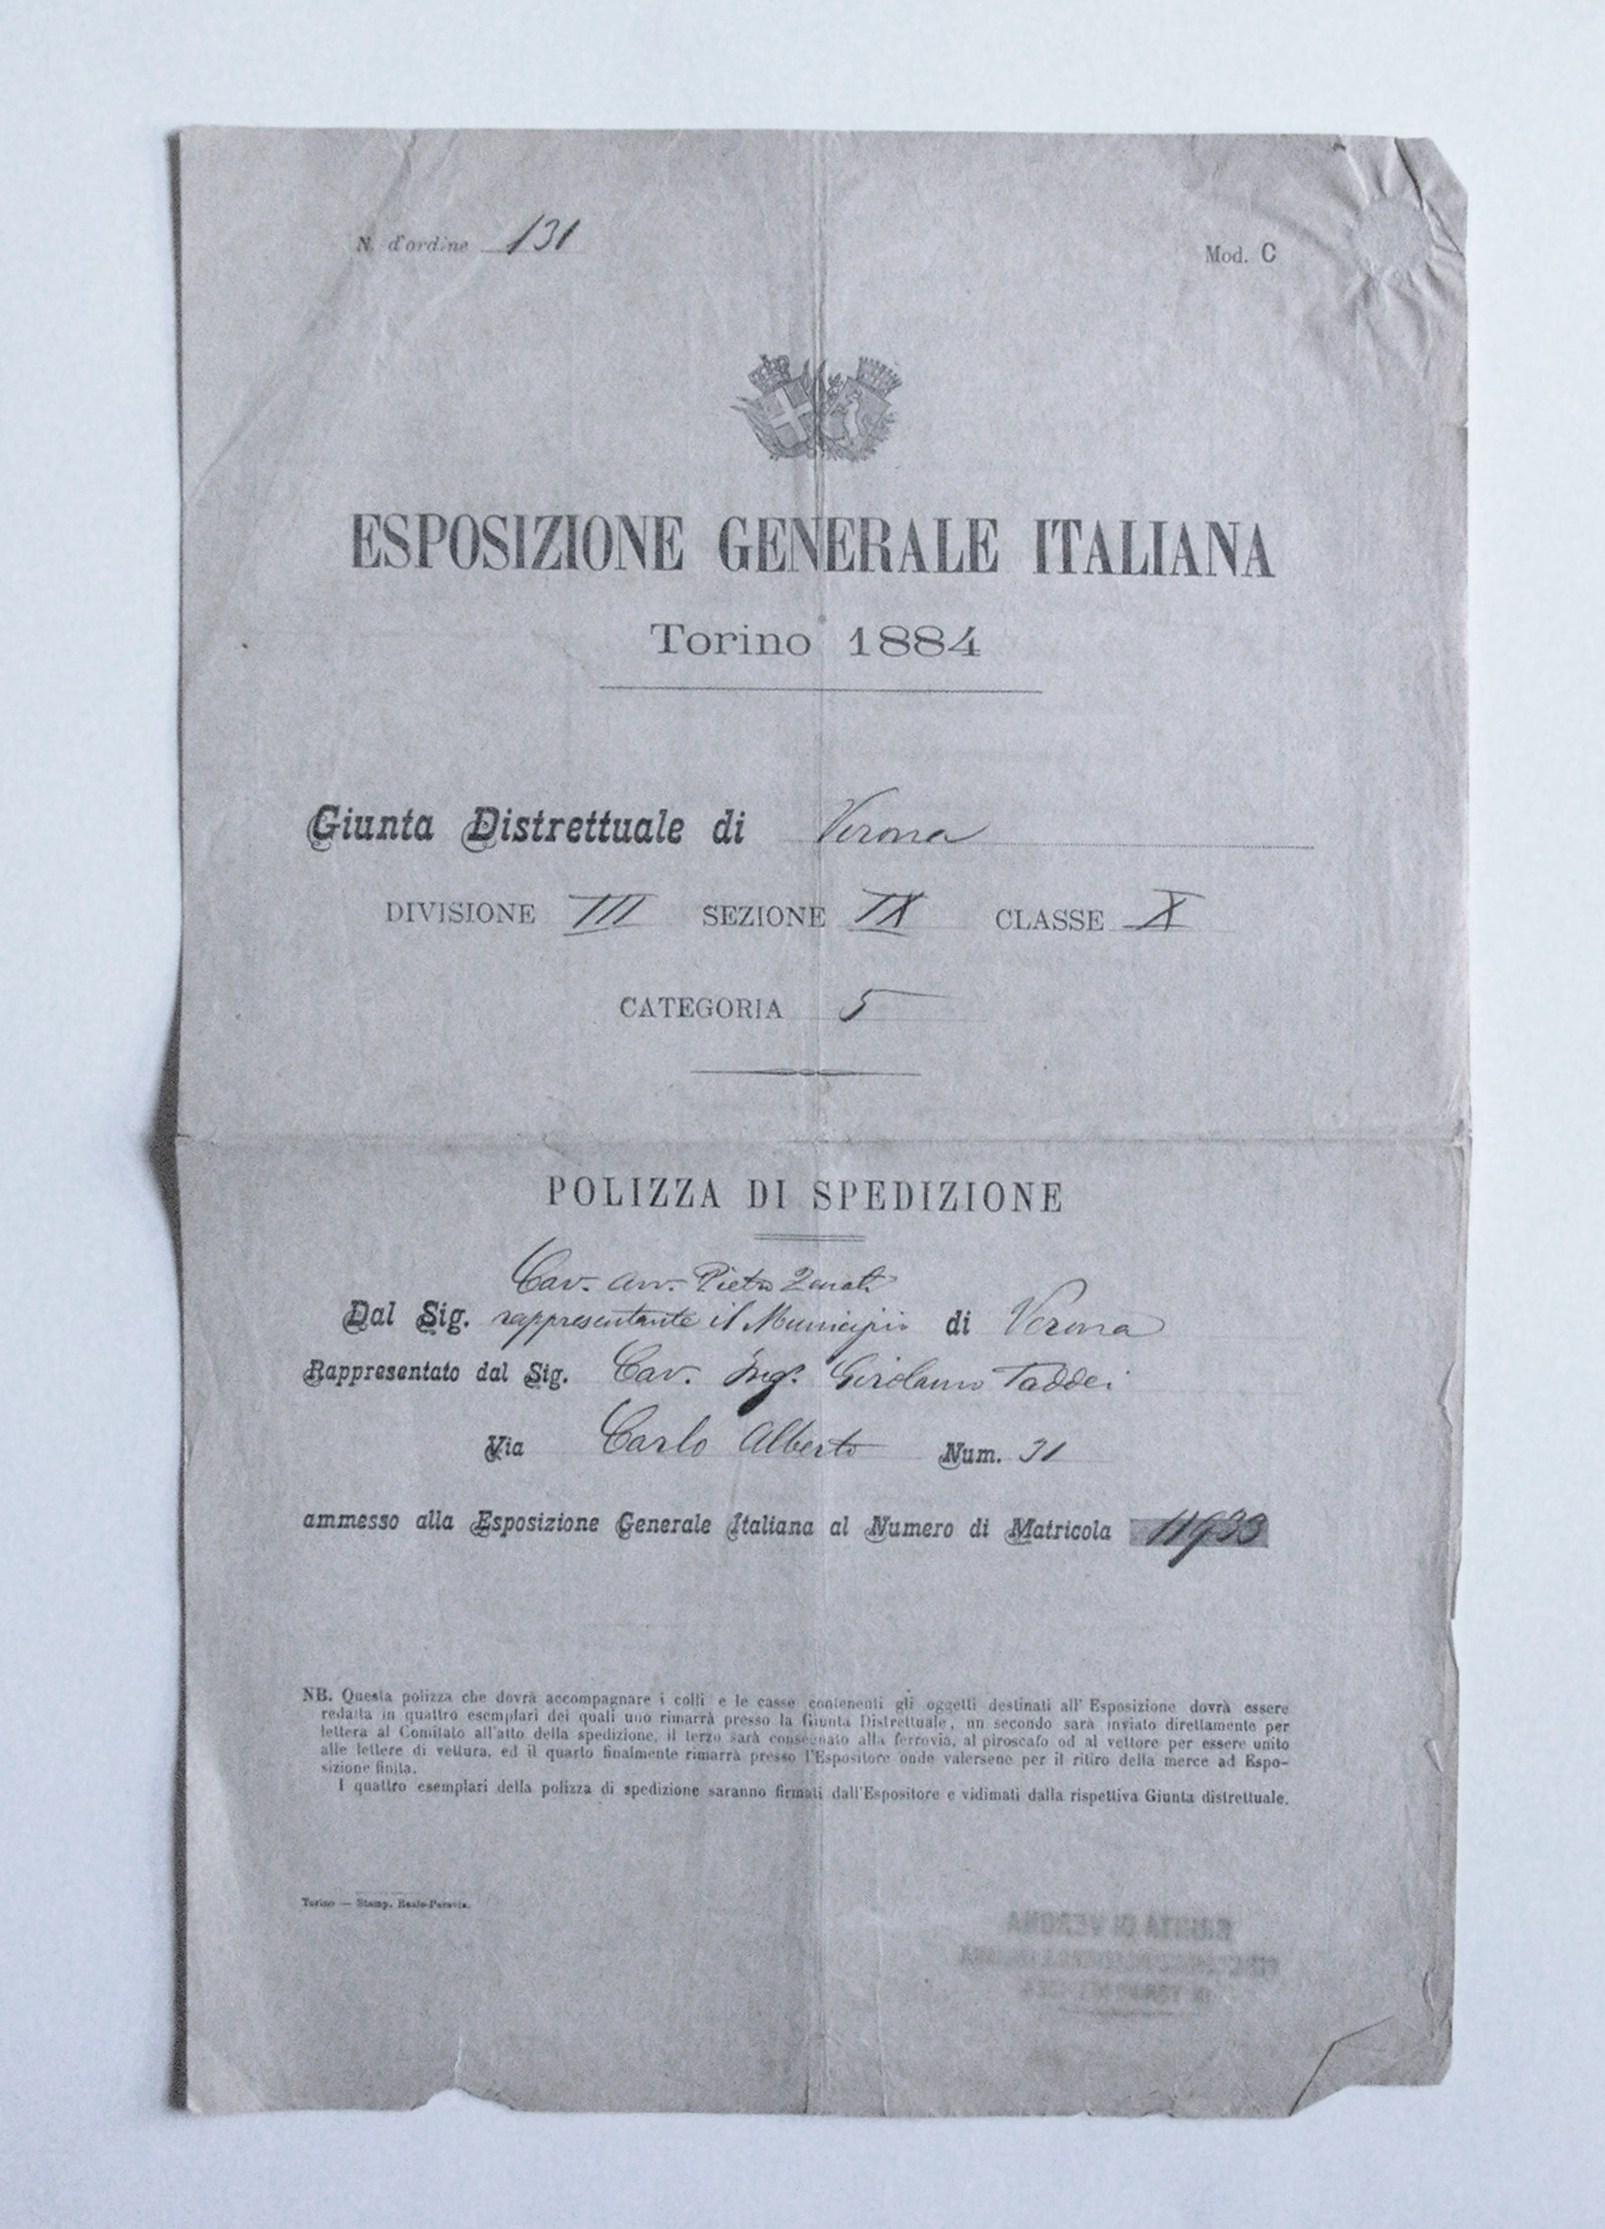 N. d'ordine 131
Mod. C
ESPOSIZIONE GENERALE ITALIANA
Torino 1884
Giunta Distrettuale di Verona
DIVISIONE III SEZIONE IX CLASSE X
CATEGORIA 5
POLIZZA DI SPEDIZIONE
Cav. Avv. Pietro Zenati
Dal Sig. rappresentante il Municipio di Verona
Rappresentato dal Sig. Cav. Ing. Girolamo Taddei
Via Carlo Alberto Num. 31
ammesso alla Esposizione Generale Italiana al Numero di Matricola 11933
NB. Questa polizza che dovrà accompagnare i colli e le casse contenenti gli oggetti destinati all'Esposizione dovrà essere
redatta in quattro esemplari dei quali uno rimarrà presso la Giunta Distrettuale, un secondo sarà inviato direttamente per
lettera al Comitato all'atto della spedizione, il terzo sarà consegnato alla ferrovia, al piroscafo od al vettore per essere unito
alle lettere di vettura, ed il quarto finalmente rimarrà presso l'Espositore onde valersene per il ritiro della merce ad Espo-
sizione finita.
I quattro esemplari della polizza di spedizione saranno firmati dall'Espositore e vidimati dalla rispettiva Giunta distrettuale.
Torino — Stamp. Reale-Paravia.
GIUNTA DI VERONA